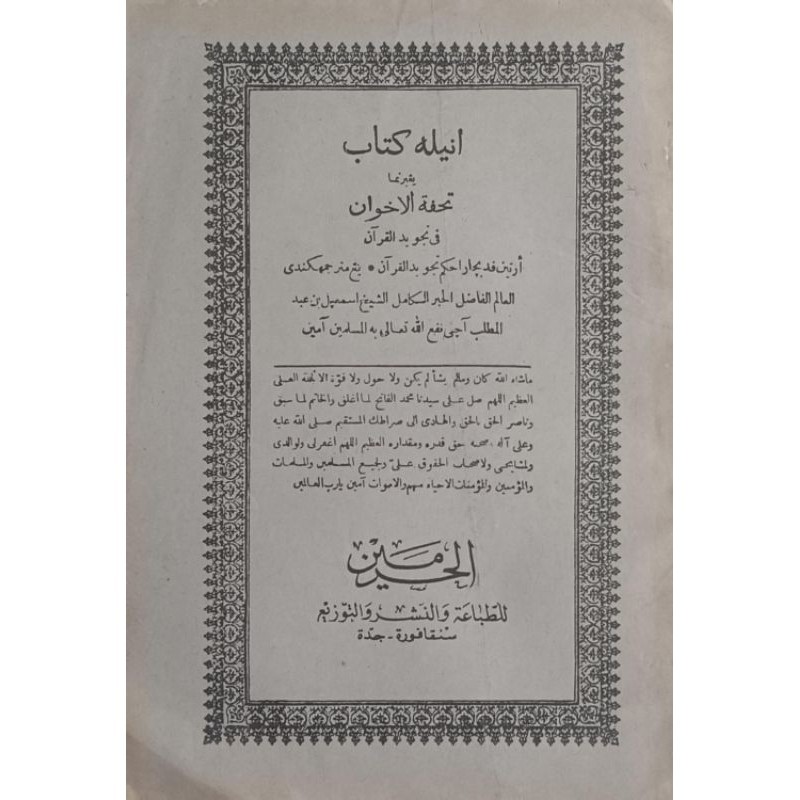 انيله كتاب
يڠبرنما
تحفة الاخوان
فى تجويد القرآن
أرتين فد بچارا حكم تجويد القرآن * يڠ منرجمهكندى
العالم الفاضل الحبر الكامل الشيخ اسمعيل بن عبد
المطلب آچى نفع الله تعالى به المسلمين آمين
ماشاء الله كان وما لم يشأ لم يكن ولا حول ولا قوة الا بالله العلى
العظيم اللهم صل على سيدنا محمد الفاتح لما اغلق والخاتم لما سبق
وناصر الحق بالحق والهادى الى صراطك المستقيم صلى الله عليه
وعلى آله وصحبه حق قدره ومقداره العظيم اللهم اغفرلى ولوالدى
ولمشايخى ولاصحاب الحقوق علىّ ولجميع المسلمين والمسلمات
والمؤمنين والمؤمنات الاحياء منهم والاموات آمين يارب العالمين
الحرمين
للطباعة والنشر والتوزيع
سنقافورة - جدة